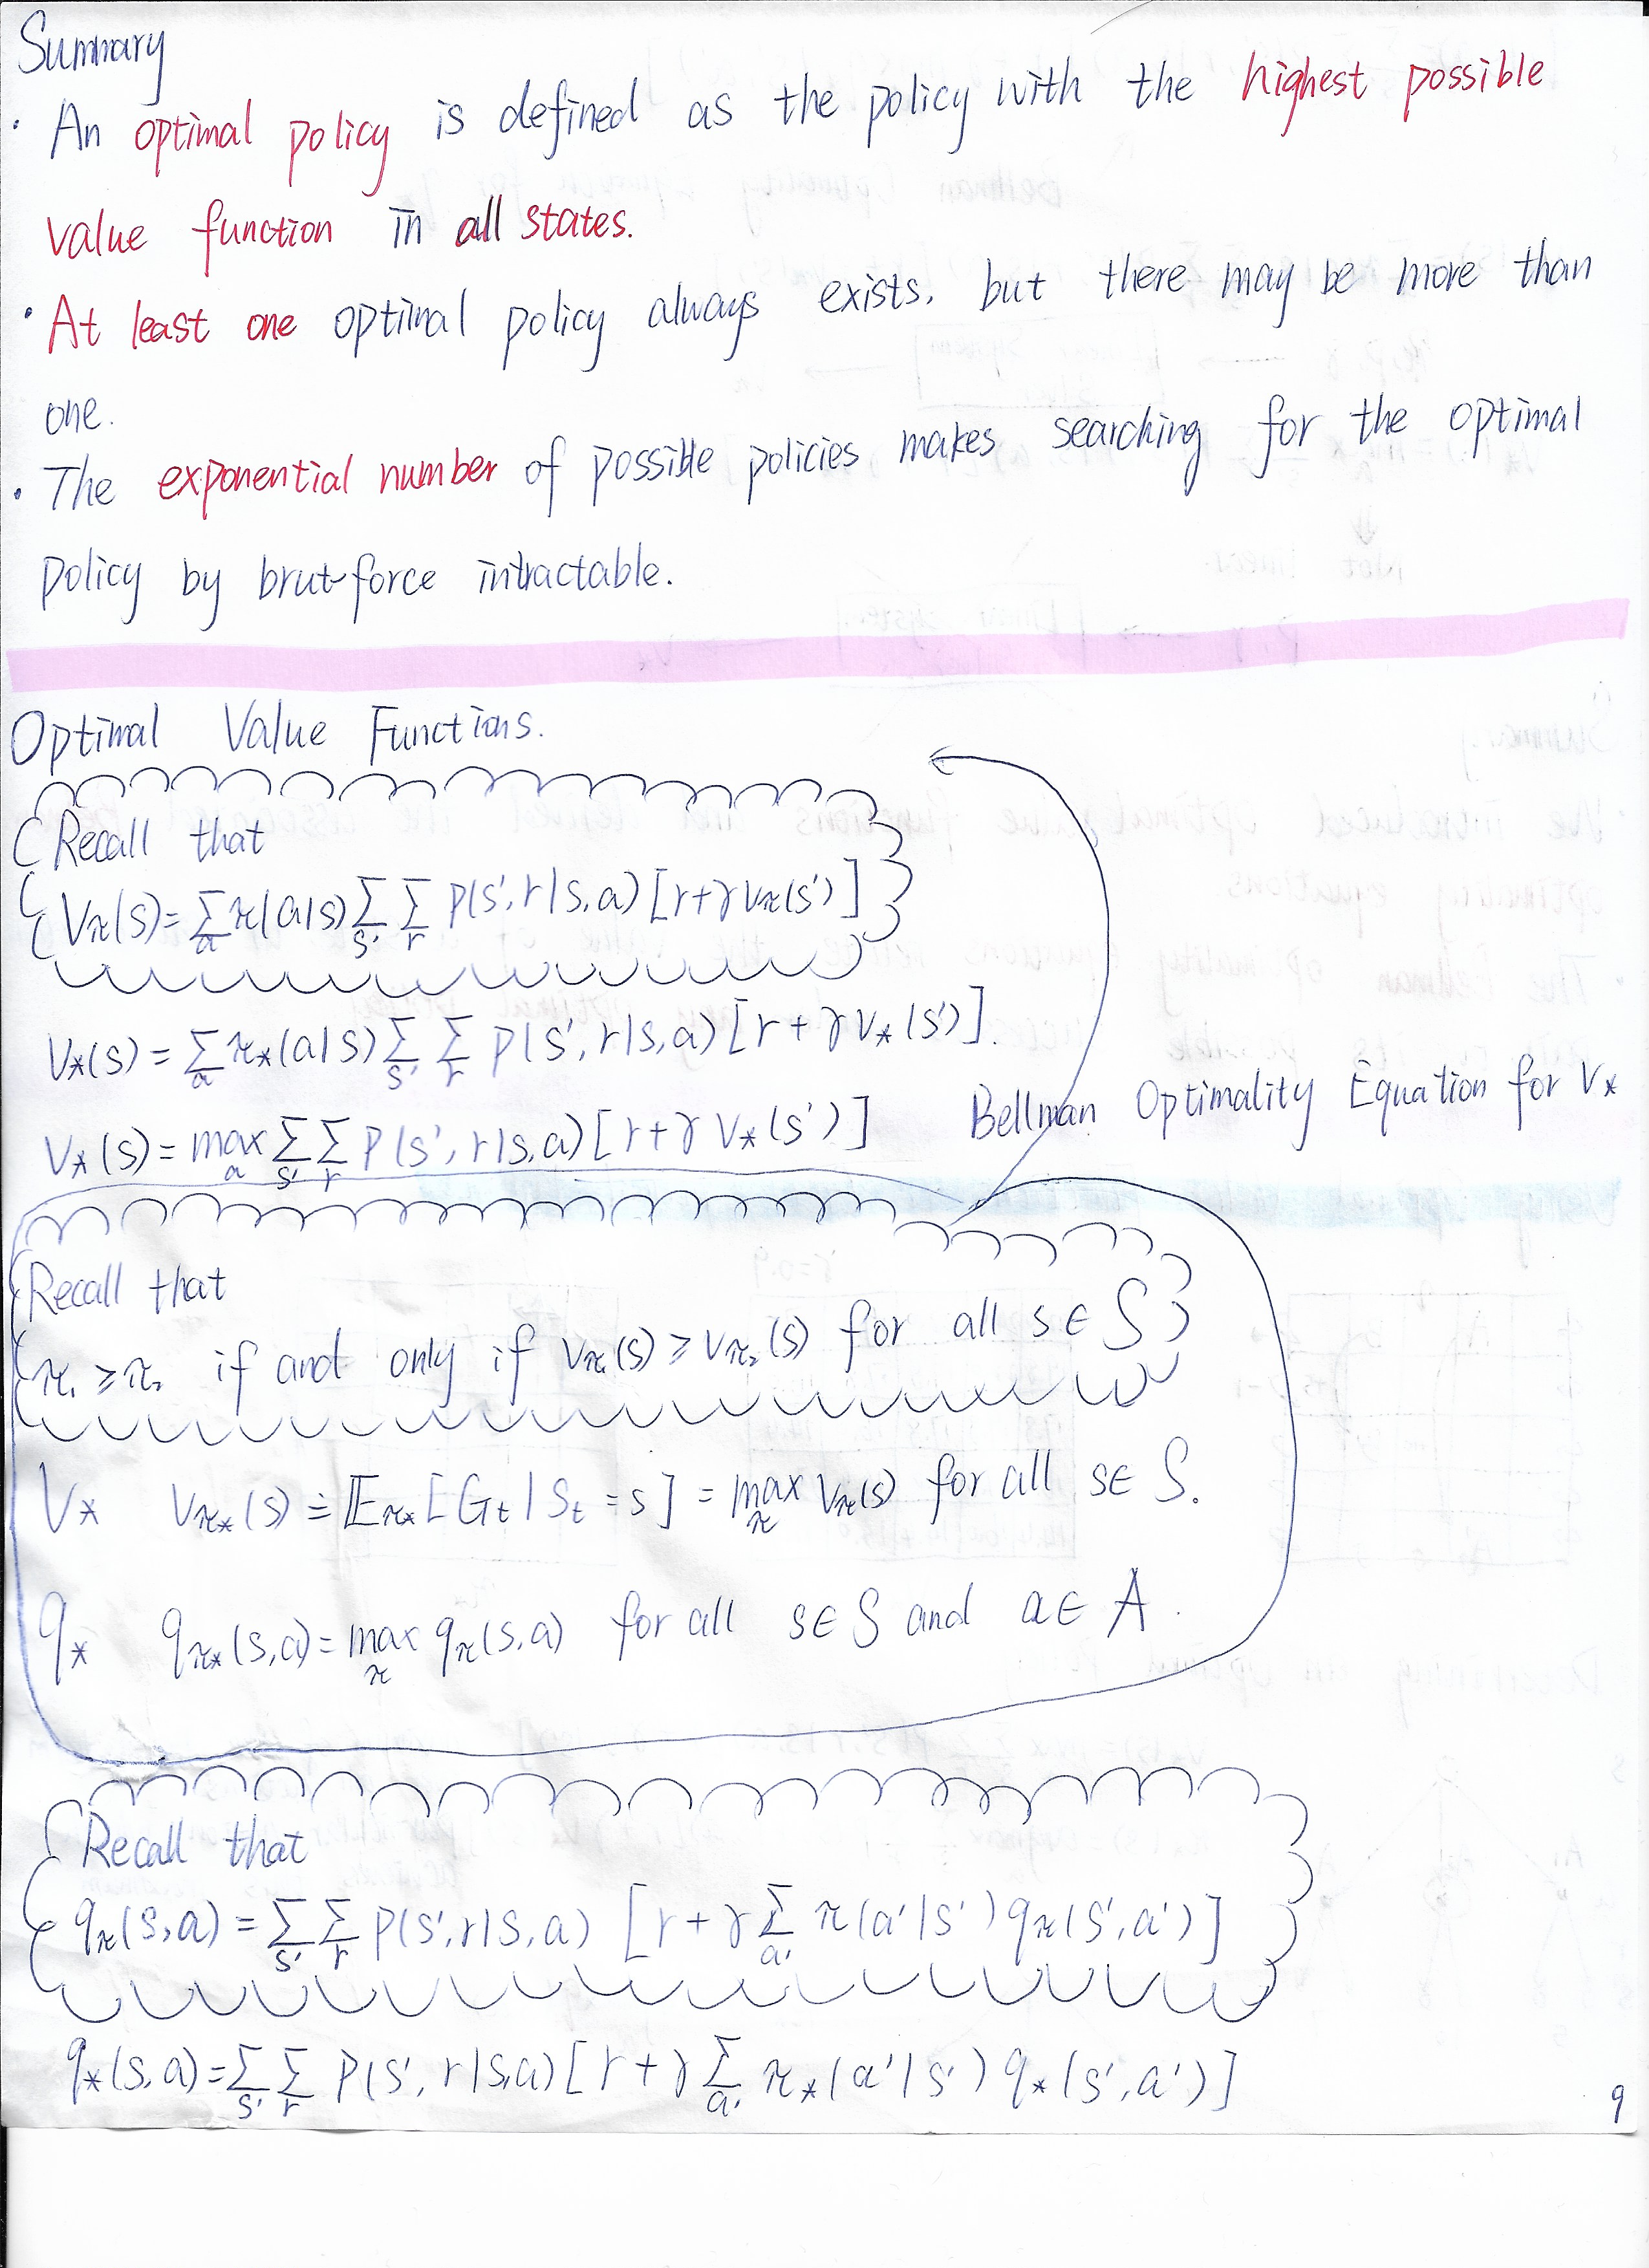 Summary
· An optimal policy is defined as the policy with the highest possible
value function in all states.
· At least one optimal policy always exists, but there may be more than
one.
· The exponential number of possible policies makes searching for the optimal
policy by brut-force intractable.
Optimal Value Functions.
Recall that
Vπ(s) = Σ_a π(a|s) Σ_s' Σ_r P(s', r|s, a) [r + γ Vπ(s')]
V*(s) = Σ_a π*(a|s) Σ_s' Σ_r P(s', r|s, a) [r + γ V*(s')].
V*(s) = max_a Σ_s' Σ_r P(s', r|s, a) [r + γ V*(s')] Bellman Optimality Equation for V*
Recall that
π₁ ≥ π₂ if and only if Vπ₁(s) ≥ Vπ₂(s) for all s ∈ S
V* Vπ*(s) ≐ 𝔼π* [Gt | St = s] = max_π Vπ(s) for all s ∈ S.
q* qπ*(s, a) = max_π qπ(s, a) for all s ∈ S and a ∈ A.
Recall that
qπ(s, a) = Σ_s' Σ_r P(s', r|s, a) [r + γ Σ_a' π(a'|s') qπ(s', a')]
q*(s, a) = Σ_s' Σ_r P(s', r|s, a) [r + γ Σ_a' π*(a'|s') q*(s', a')]
9